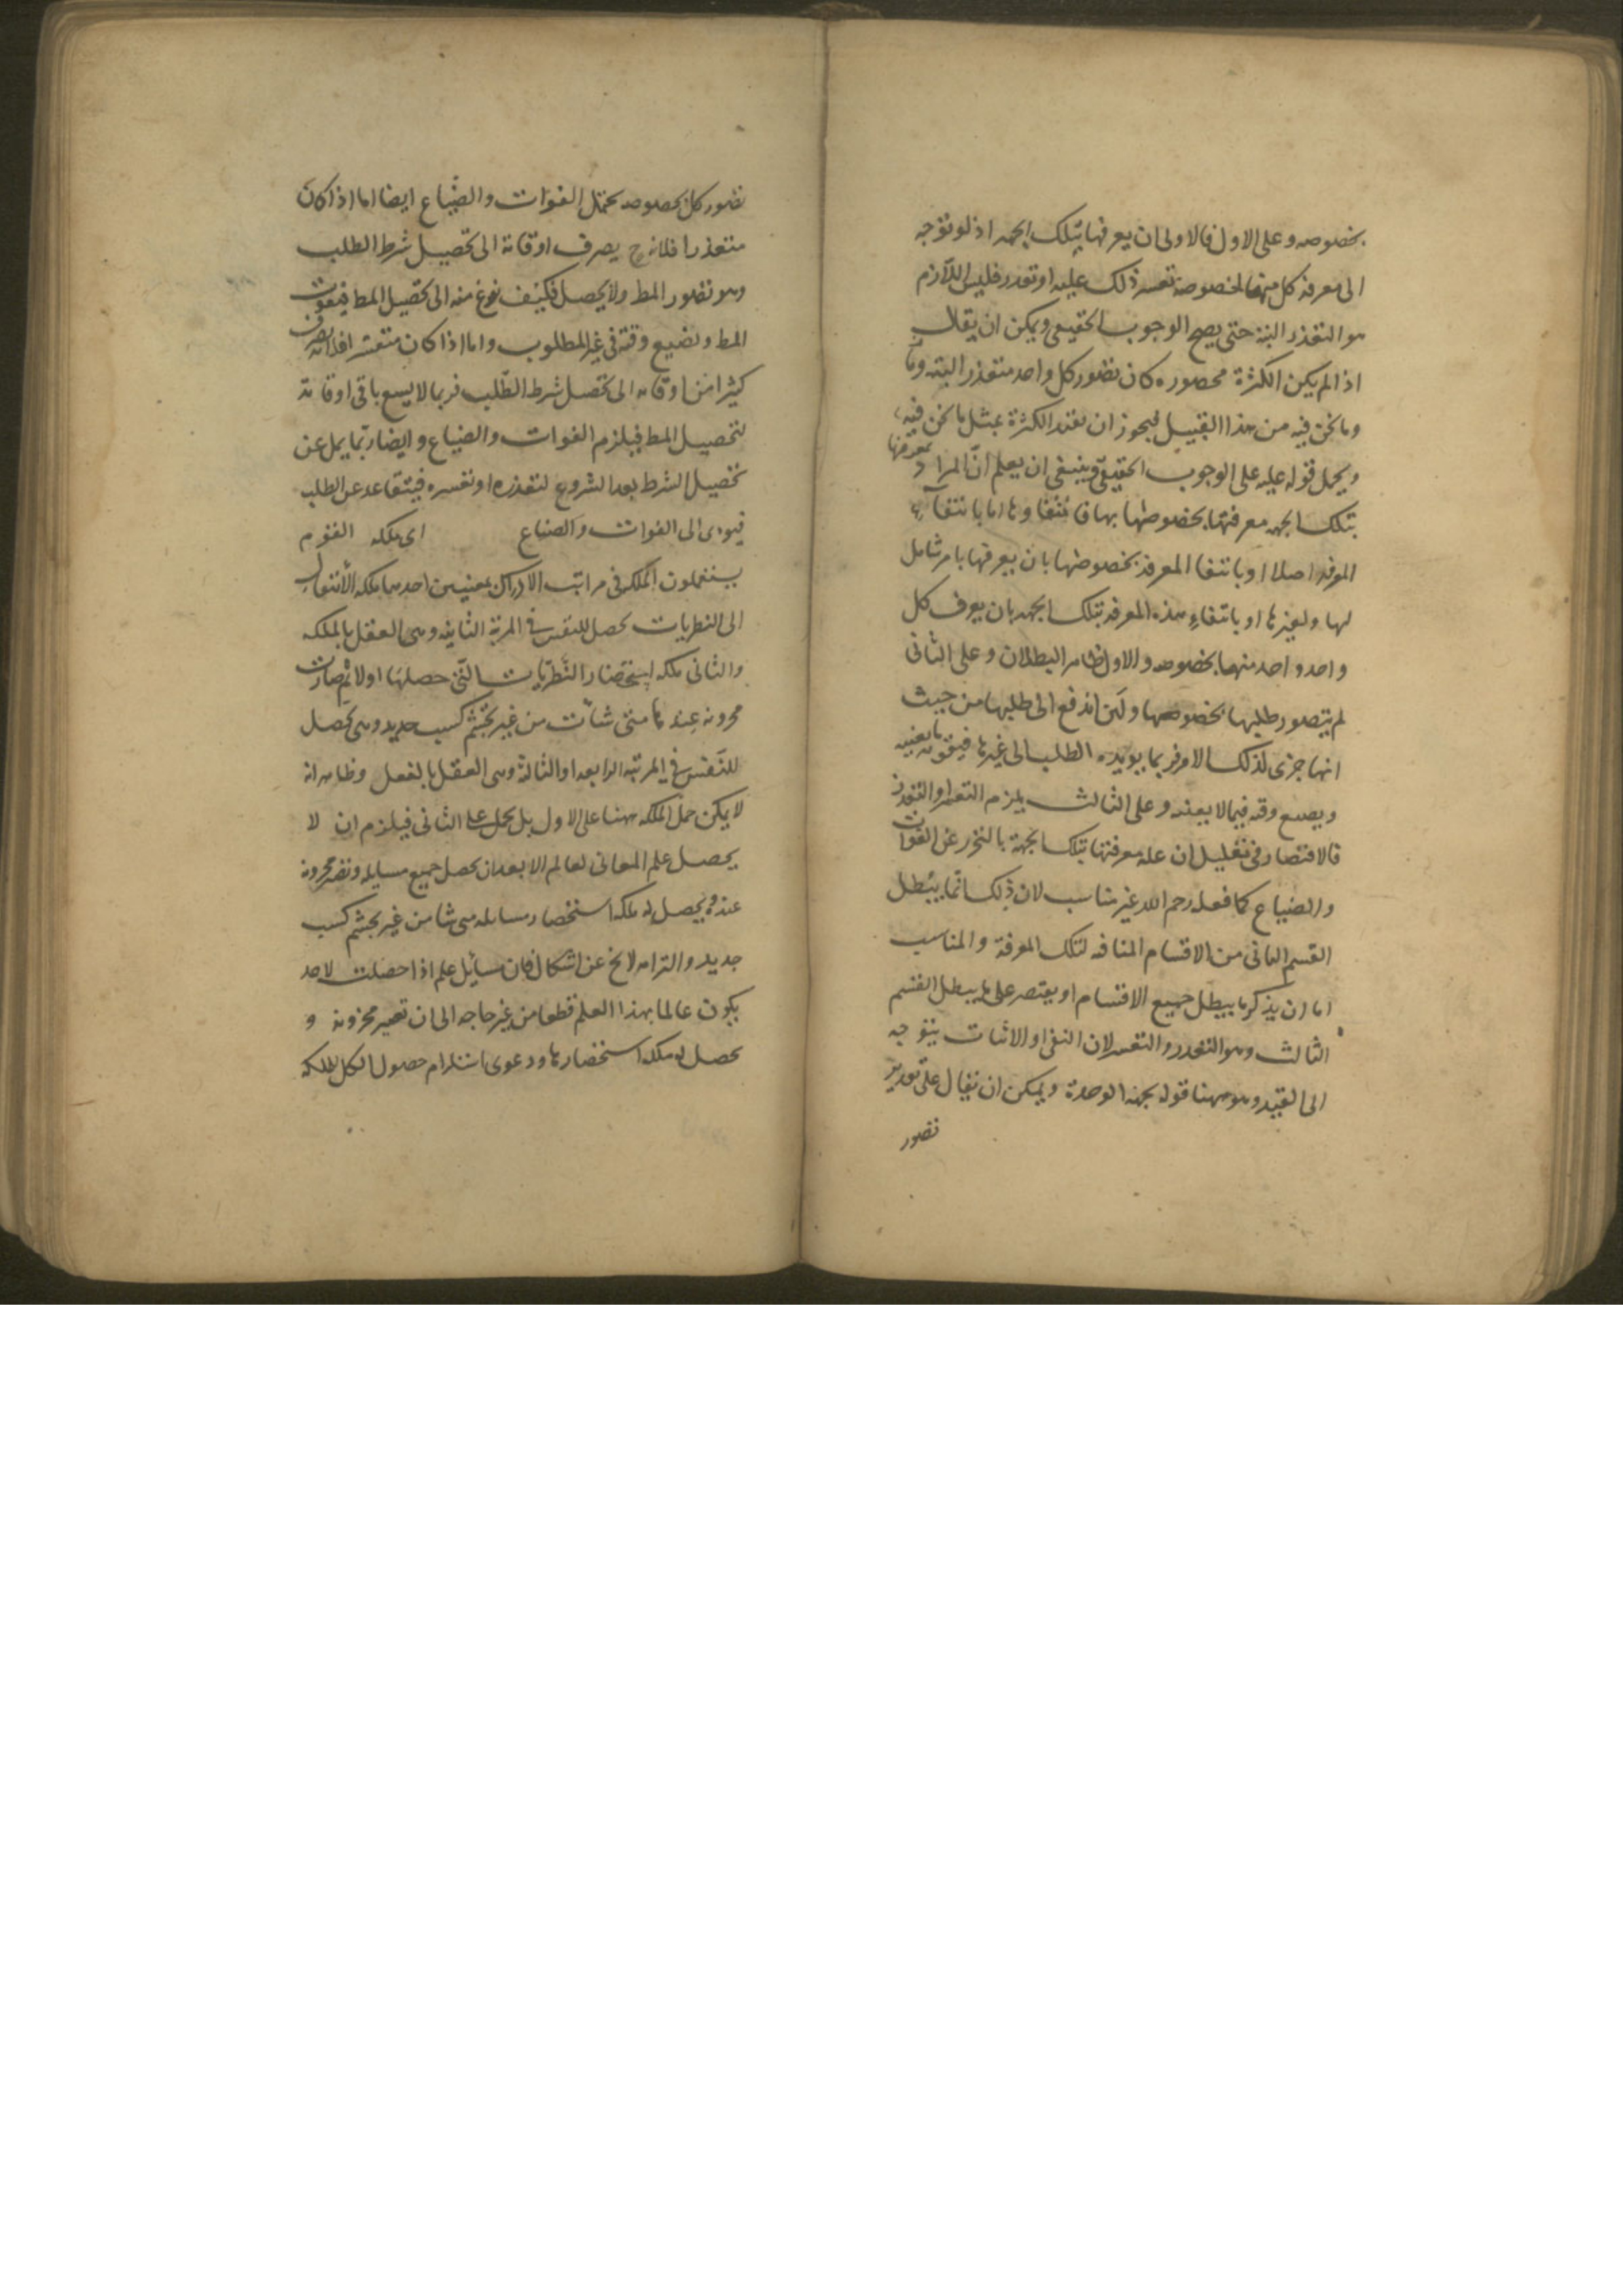 بخصوصه وعلى الاول فالاولى ان يعرفها بتلك الجهه اذ لو توجه
الى معرفة كل منها لخصوصة تعسر ذلك عليه او تعذر فليس اللازم
هو التعذر البتة حتى يصح الوجوب الحقيقى ويمكن ان يقال
اذا لم يكن الكثرة محصوره كان تصور كل واحد متعذر البته وما
وما نحن فيه من هذا القبيل فيجوز ان الكثرة بمثل ما نحن فيه
ويحمل قوله عليه على الوجوب الحقيقى وينبغى ان يعلم انّ المراد بمعرفتها
بتلك الجهه معرفتها بخصوصها بها فانتفاوها اما بانتفاء
المعرفه اصلا او بانتفا المعرفة بخصوصها بان يعرفها بامر شامل
لها ولغيرها او بانتفاء هذه المعرفه بتلك الجهه بان يعرف كل
واحد واحد منها بخصوصه والاول ظاهر البطلان وعلى الثانى
لم يتصور طلبها بخصوصها ولئن اندفع الى طلبها من حيث
انها جزى لذلك الامر فربما يويده الطلب الى غيرها فيفوته ما يعنيه
ويضيع وقته فيما لا يعنيه وعلى الثالث يلزم التعسر او التعذر
فالاقتصار فى تعليل ان عله معرفتها بتلك الجهة بالتحرز عن الفوات
والضياع كما فعله رحمه الله غير مناسب لان ذلك انما يبطل
القسم الثانى من الاقسام المنافيه لتلك المعرفة والمناسب
اما ان يذكر ما يبطل جميع الاقسام او يقتصر على ما يبطل القسم
الثالث وهو التعذر والتعسر لان النفى او الاثبات يتوجه
الى القيد وهو ههنا قوله بجهة الوحدة ويمكن ان يقال على تقدير
تصور
تصور كل بخصوصه يحتمل الفوات والضياع ايضا اما اذا كان
متعذرا فلانه ح يصرف اوقاتة الى تحصيل شرط الطلب
وهو تصور المط ولا يحصل فكيف فرغ منه الى تحصيل المط فيفوت
المط ويضيع وقته فى غير المطلوب واما اذا كان متعسرا فلانه يصرف
كثيرا من اوقاته الى تحصيل شرط الطلب فربما لا يسع باقى اوقاته
لتحصيل المط فيلزم الفوات والضياع وايضا ربّما يمل عن
تحصيل الشرط بعد الشروع لتعذره او تعسره فيتقاعد عن الطلب
فيودى الى الفوات والضياع اى ملكه القوم
يستعملون الملكه فى مراتب الادراك بمعنيين احدهما ملكه الانتقال
الى النظريات يحصل للنفس فى المرتبة الثانيه وهى العقل بالملكه
والثانى ملكه استحضار النظريات التى حصلها اولا ثم صارت
مخزونه عندها متى شاءت من غير تجشم كسب جديد وهى تحصل
للنفس فى المرتبه الرابعه او الثالثة وهى العقل بالفعل وظاهر انه
لا يمكن حمل الملكه ههنا على الاول بل يحمل على الثانى فيلزم ان لا
يحصل علم المعانى لعالم الا بعد ان يحصل جميع مسايله وتصير مخزونة
عنده ويحصل له ملكه استحضار مسايله متى شا من غير تجشم كسب
جديد والتزامه لا يخ عن اشكال فان مسائل علم اذا حصلت لاحد
يكون عالما بهذا العلم قطعا من غير حاجه الى ان تصير مخزونة و
يحصل له ملكه استحضارها ودعوى استلزام حصول الكل للملكه